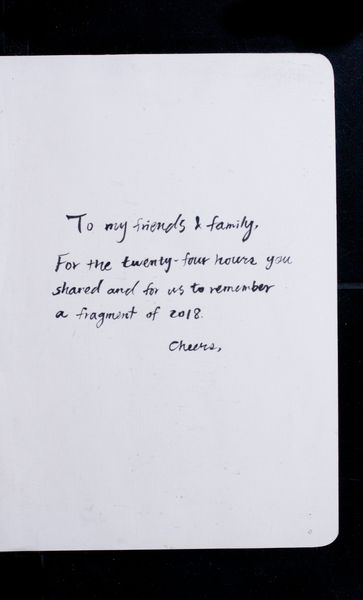 To my friends & family,
For the twenty-four hours you
shared and for us to remember
a fragment of 2018.
Cheers,